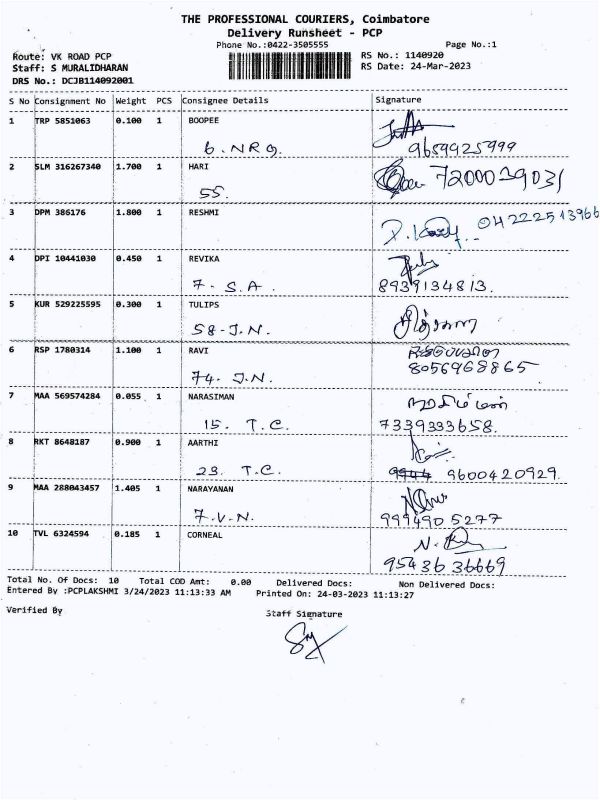 THE PROFESSIONAL COURIERS, Coimbatore
Delivery Runsheet - PCP
Phone No.:0422-3505555 Page No.:1
Route: VK ROAD PCP RS No.: 1140920
Staff: S MURALIDHARAN RS Date: 24-Mar-2023
DRS No.: DCJB114092001
S No Consignment No Weight PCS Consignee Details Signature
1 TRP 5851063 0.100 1 BOOPEE
6. NRG. 9659925999
2 SLM 316267340 1.700 1 HARI 7200039031
55.
3 DPM 386176 1.800 1 RESHMI 04222513966
4 DPI 10441030 0.450 1 REVIKA
7. S.A. 8939134813.
5 KUR 529225595 0.300 1 TULIPS
58-J.N.
6 RSP 1780314 1.100 1 RAVI
74. J.N. 8056968865
7 MAA 569574284 0.055 1 NARASIMAN
15. T.C. 7339333658.
8 RKT 8648187 0.900 1 AARTHI
23. T.C. 9944 9600420929.
9 MAA 288043457 1.405 1 NARAYANAN
7.V.N. 9994905277
10 TVL 6324594 0.185 1 CORNEAL
9543636669
Total No. Of Docs: 10 Total COD Amt: 0.00 Delivered Docs: Non Delivered Docs:
Entered By :PCPLAKSHMI 3/24/2023 11:13:33 AM Printed On: 24-03-2023 11:13:27
Verified By Staff Signature